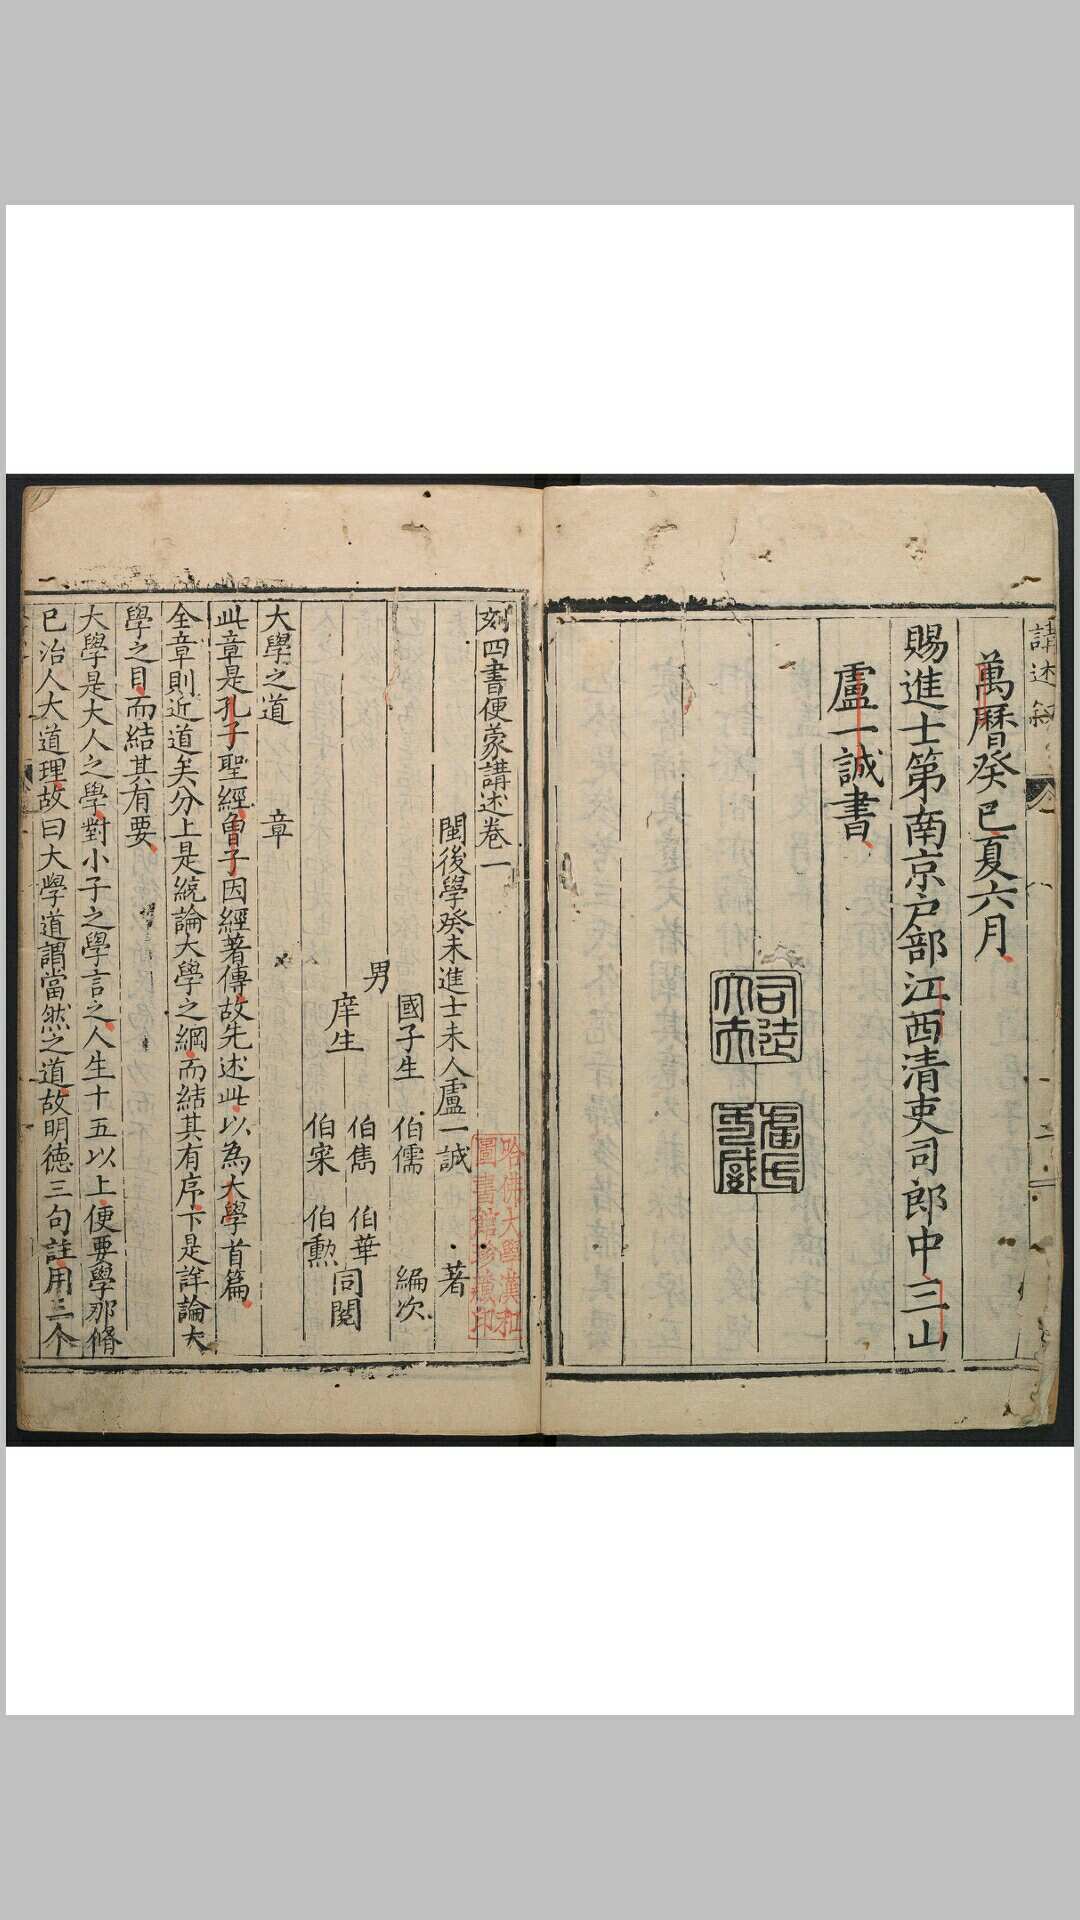 講述叙
二
萬曆癸巳夏六月
賜進士第南京戶部江西清吏司郎中三山
盧一誠書
刻四書便蒙講述卷一
閩後學癸未進士未人盧一誠著
國子生伯儒編次
男
伯雋伯華
庠生
同閱
伯寀伯勲
哈佛大學漢和
圖書館珍藏印
大學之道章
此章是孔子聖經曾子因經著傳故先述此以為大學首篇
全章則近道矣分上是統論大學之綱而結其有序下是詳論大
學之目而結其有要
大學是大人之學對小子之學言之人生十五以上便要學那脩
已治人大道理故曰大學道謂當然之道故明德三句註用三个